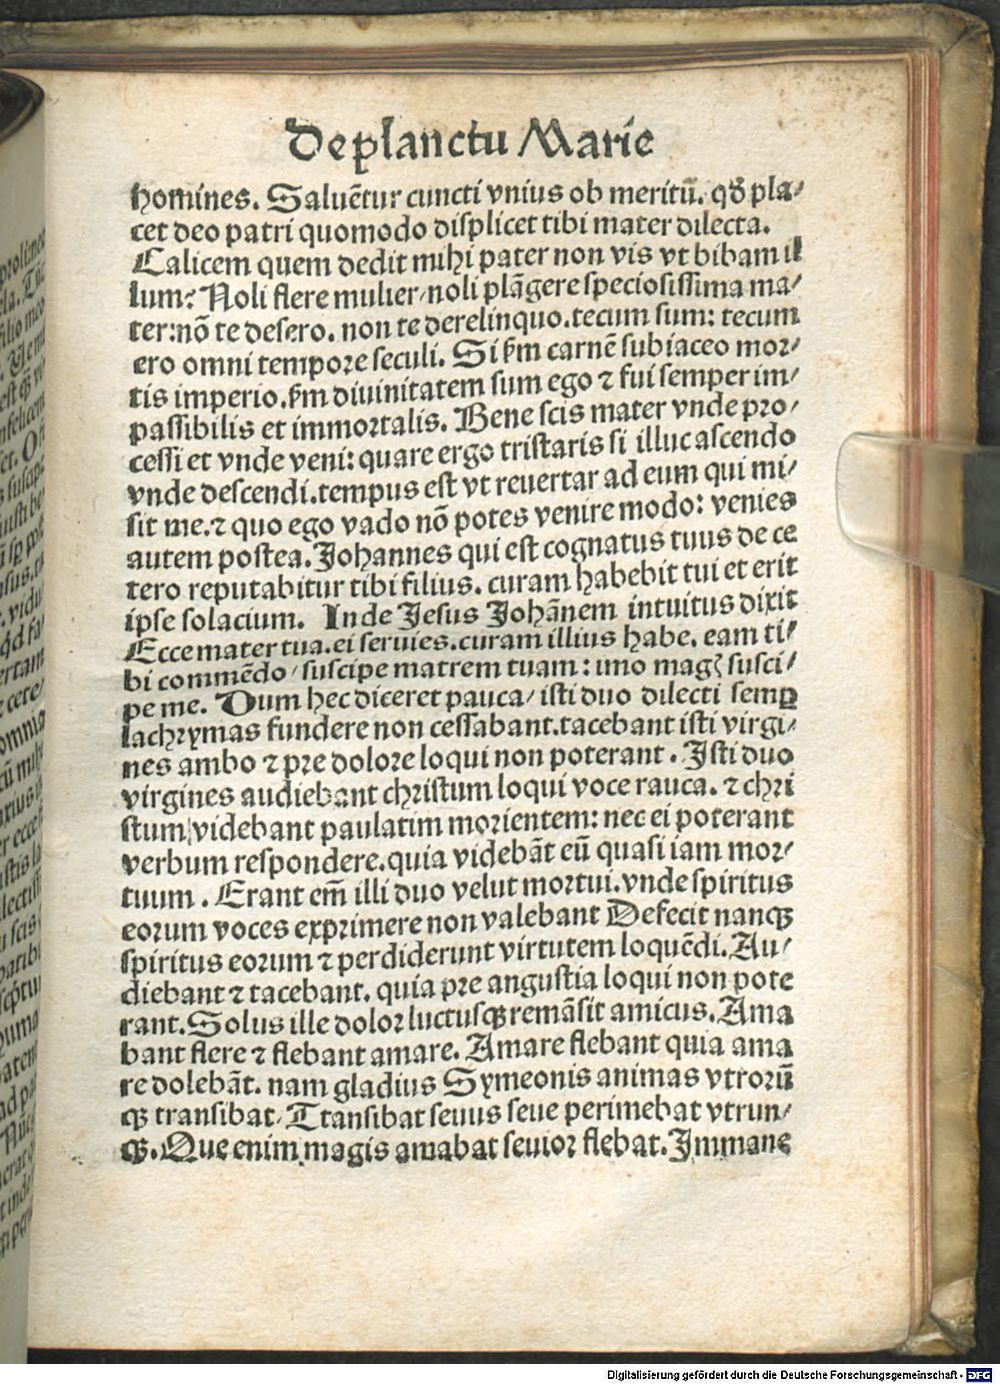 De planctu Marie
homines. Saluētur cuncti vnius ob meritū. qđ pla⸗
cet deo patri quomodo displicet tibi mater dilecta.
Calicem quem dedit mihi pater non vis vt bibam il
lum? Noli flere mulier/noli plāgere speciosissima ma⸗
ter:nō te desero. non te derelinquo.tecum sum: tecum
ero omni tempore seculi. Si ẜm carnē subiaceo mor⸗
tis imperio.ẜm diuinitatem sum ego ⁊ fui semper im⸗
passibilis et immortalis. Bene scis mater vnde pro⸗
cessi et vnde veni: quare ergo tristaris si illuc ascendo
vnde descendi.tempus est vt reuertar ad eum qui mi⸗
sit me.⁊ quo ego vado nō potes venire modo: venies
autem postea. Johannes qui est cognatus tuus de ce
tero reputabitur tibi filius. curam habebit tui et erit
ipse solacium. Inde Jesus Johānem intuitus dixit
Ecce mater tua.ei seruies.curam illius habe. eam ti⸗
bi commēdo/suscipe matrem tuam: imo magꝭ susci⸗
pe me. Dum hec diceret pauca/isti duo dilecti semꝑ
lachrymas fundere non cessabant.tacebant isti virgi⸗
nes ambo ⁊ pre dolore loqui non poterant. Isti duo
virgines audiebant christum loqui voce rauca. ⁊ chri
stum videbant paulatim morientem: nec ei poterant
verbum respondere.quia videbāt eū quasi iam mor⸗
tuum. Erant em̄ illi duo velut mortui.vnde spiritus
eorum voces exprimere non valebant Defecit nanqꝫ
spiritus eorum ⁊ perdiderunt virtutem loquēdi. Au⸗
diebant ⁊ tacebant. quia pre angustia loqui non pote
rant. Solus ille dolor luctusqꝫ remāsit amicus. Ama
bant flere ⁊ flebant amare. Amare flebant quia ama
re dolebāt. nam gladius Symeonis animas vtrorū
qꝫ transibat/Ttansibat seuus seue perimebat vtrun⸗
qꝫ. Que enim magis amabat seuior flebat. Immane
Digitalisierung gefördert durch die Deutsche Forschungsgemeinschaft - DFG